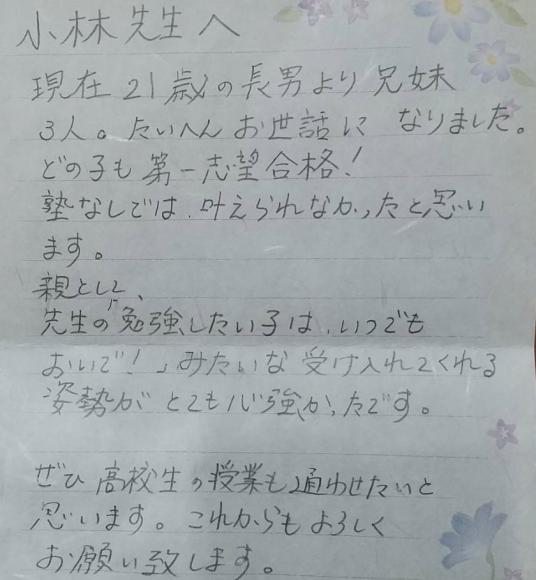 小林先生へ
現在21歳の長男より兄妹
3人。たいへんお世話になりました。
どの子も第一志望合格!
塾なしでは、叶えられなかったと思い
ます。
親として、
先生の「勉強したい子は、いつでも
おいで!」みたいな受け入れてくれる
姿勢がとても心強かったです。
ぜひ高校生の授業も通わせたいと
思います。これからもよろしく
お願い致します。